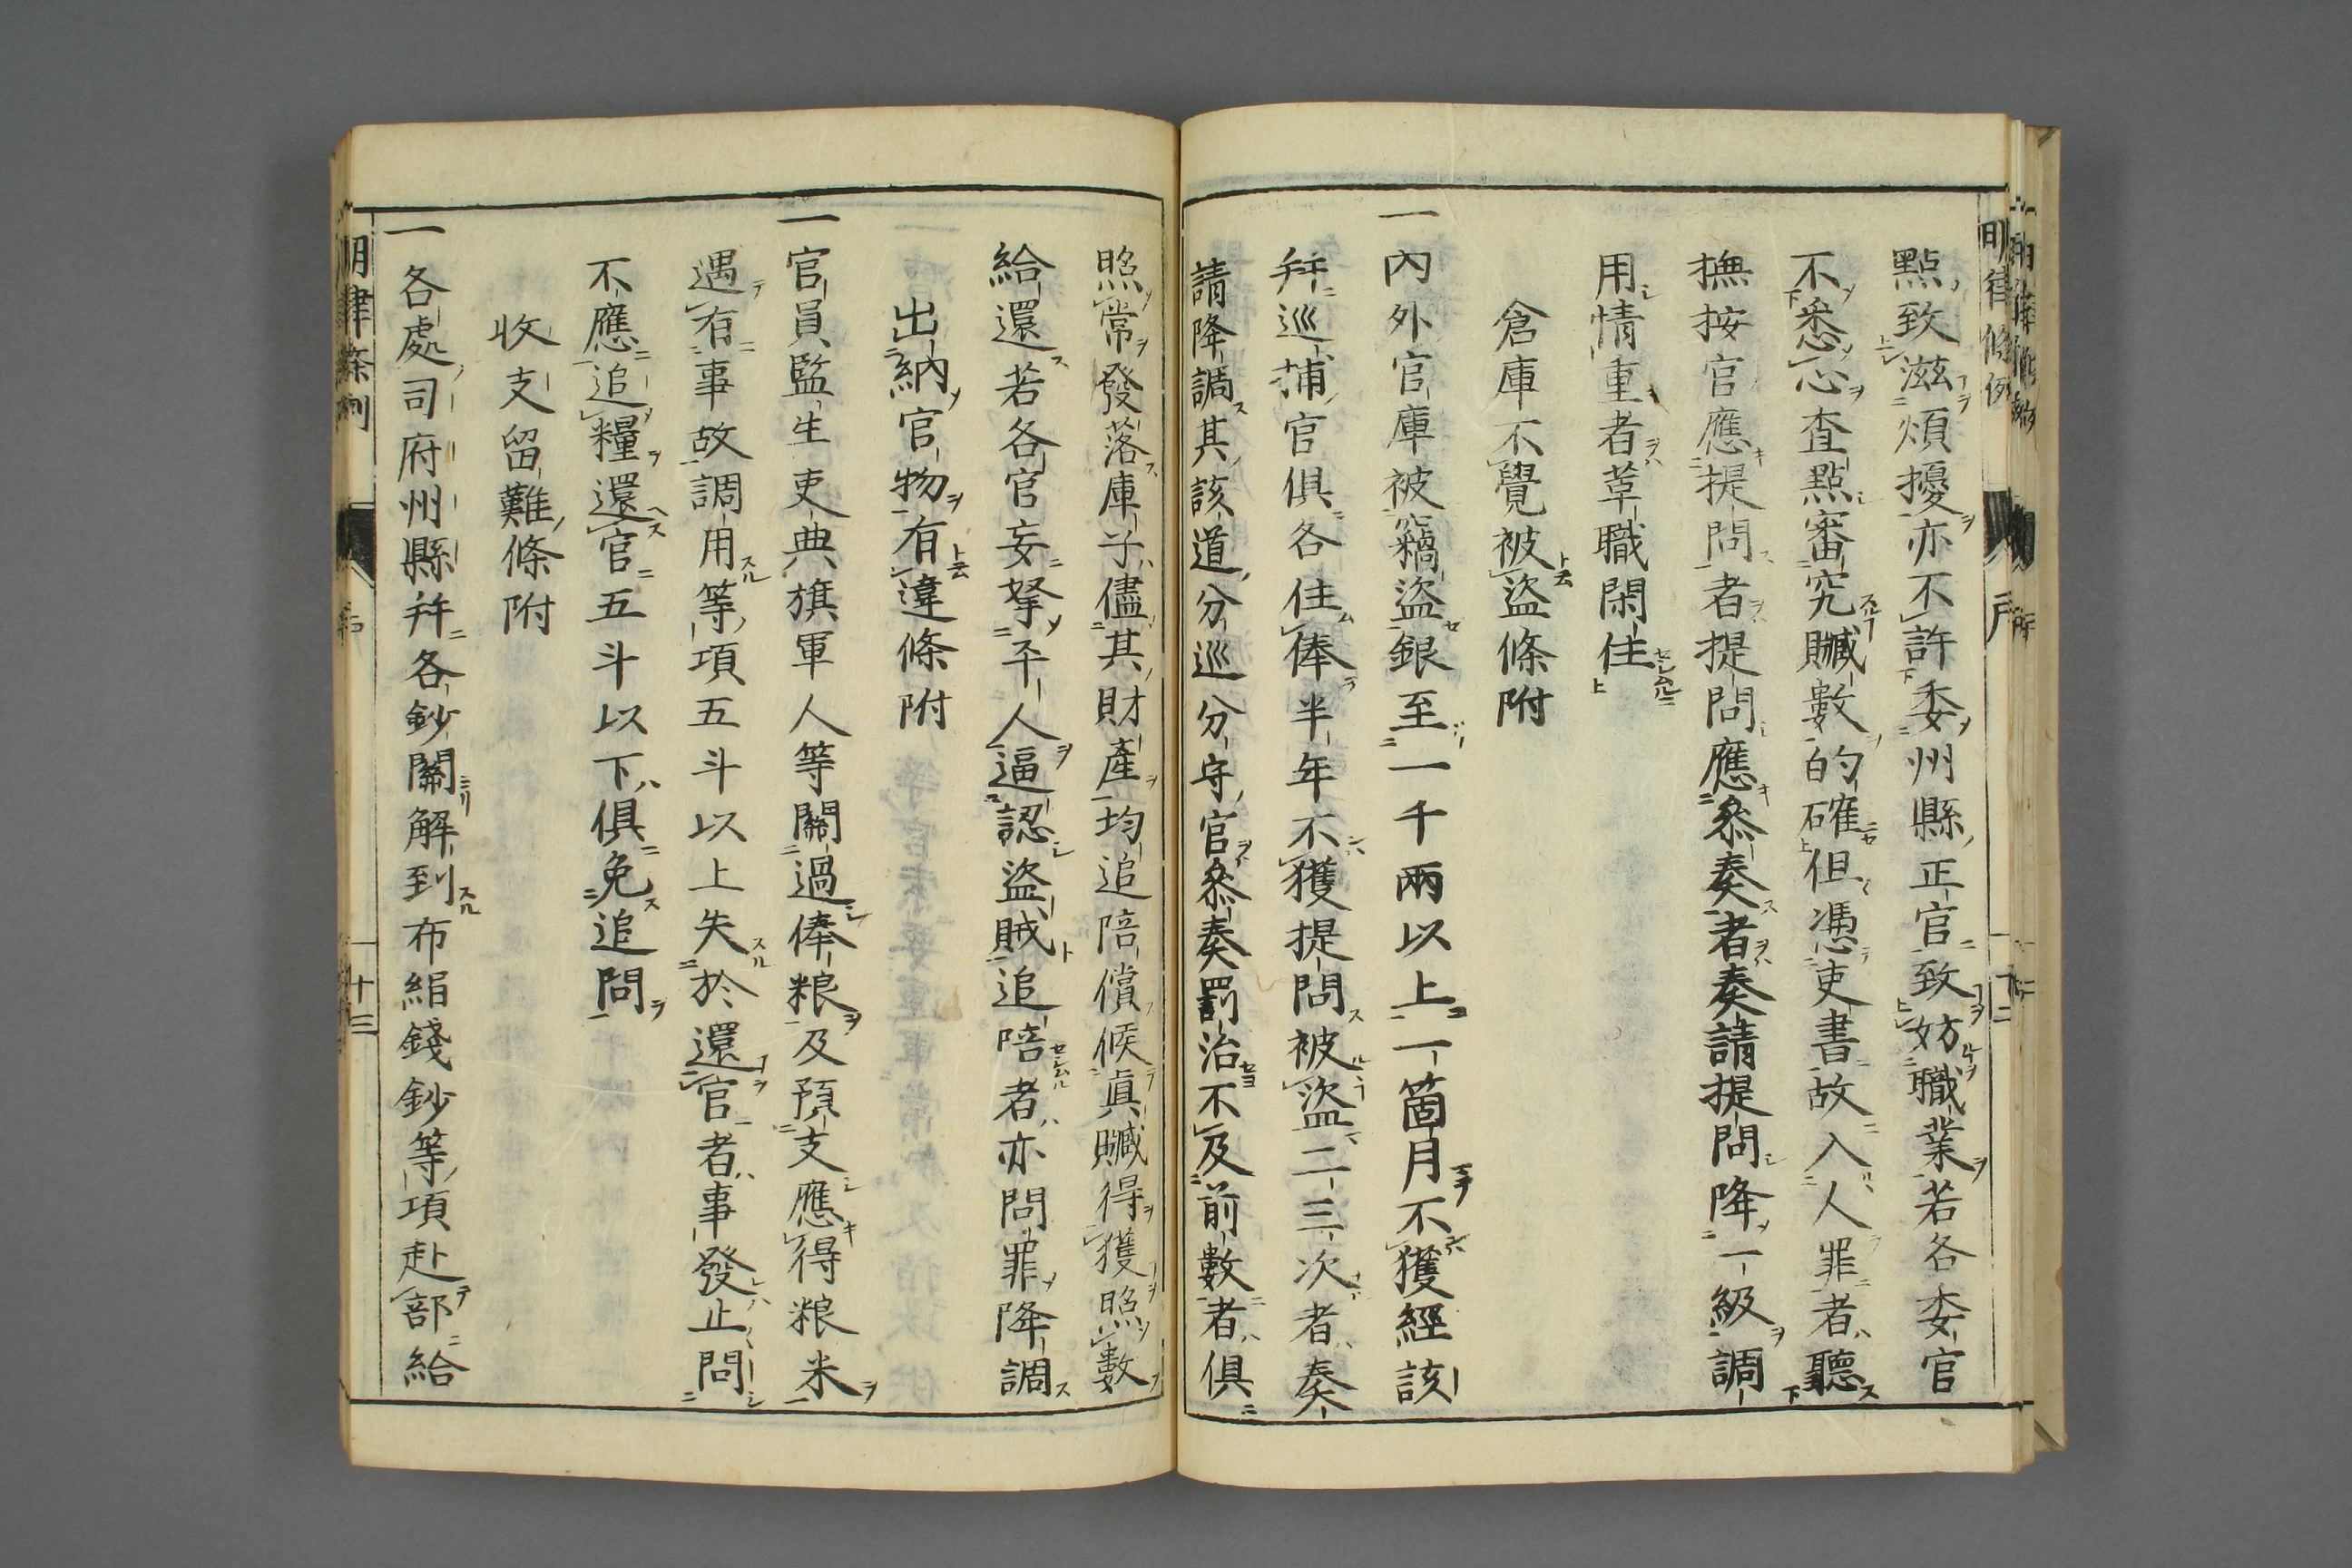 點致滋煩擾亦不許委州縣正官致妨職業若各委官
不悉心査點審究贓數的確但憑吏書故入人罪者聽
撫按官應提問者提問應叅奏者奏請提問降一級調
用情重者革職閑住
倉庫不覺被盜條附
一內外官庫被竊盜銀至一千兩以上一箇月不獲經該
幷巡捕官俱各住俸半年不獲提問被盜二三次者奏
請降調其該道分巡分守官叅奏罰治不及前數者俱
照常發落庫子儘其財產均追陪償候眞贓得獲照數
給還若各官妄拏平人逼認盜賊追陪者亦問罪降調
出納官物有違條附
一官員監生吏典旗軍人等關過俸粮及預支應得粮米
遇有事故調用等項五斗以上失於還官者事發止問
不應追糧還官五斗以下俱免追問
收支留難條附
一各處司府州縣幷各鈔關解到布絹錢鈔等項赴部給
明律條例
十三